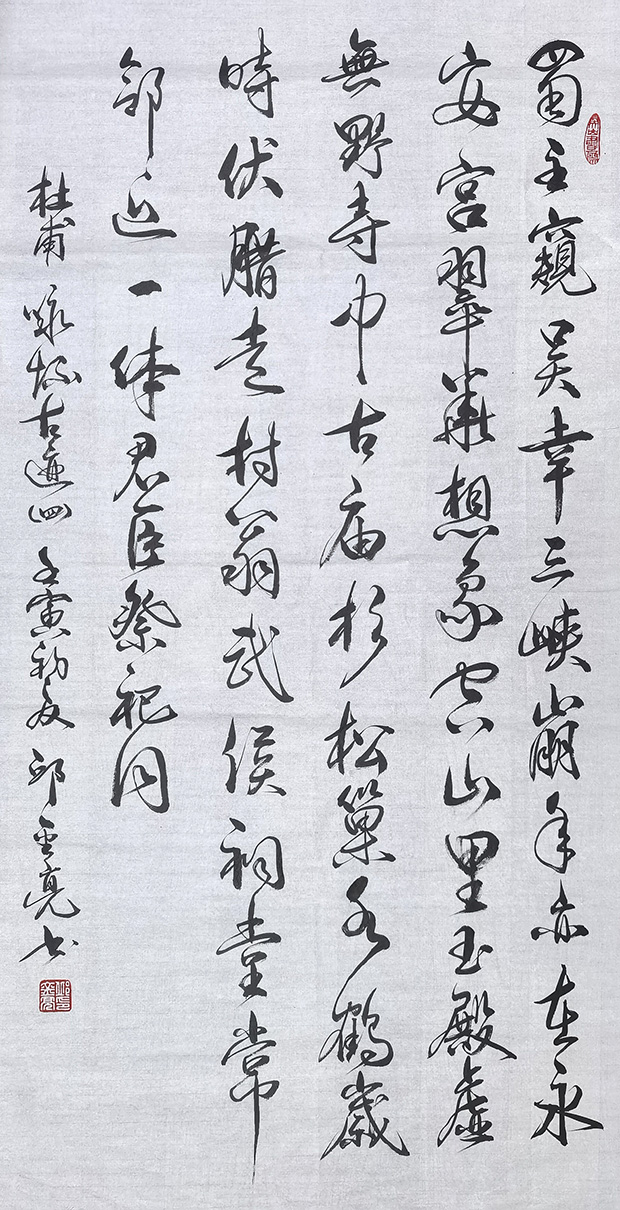 蜀主窺吳幸三峽崩年亦在永
安宮翠華想象空山里玉殿虛
無野寺中古庙杉松巢水鶴歲
時伏臘走村翁武侯祠堂常
邻近一体君臣祭祀同
杜甫 咏怀古迹四 壬寅初夏 邱亮书